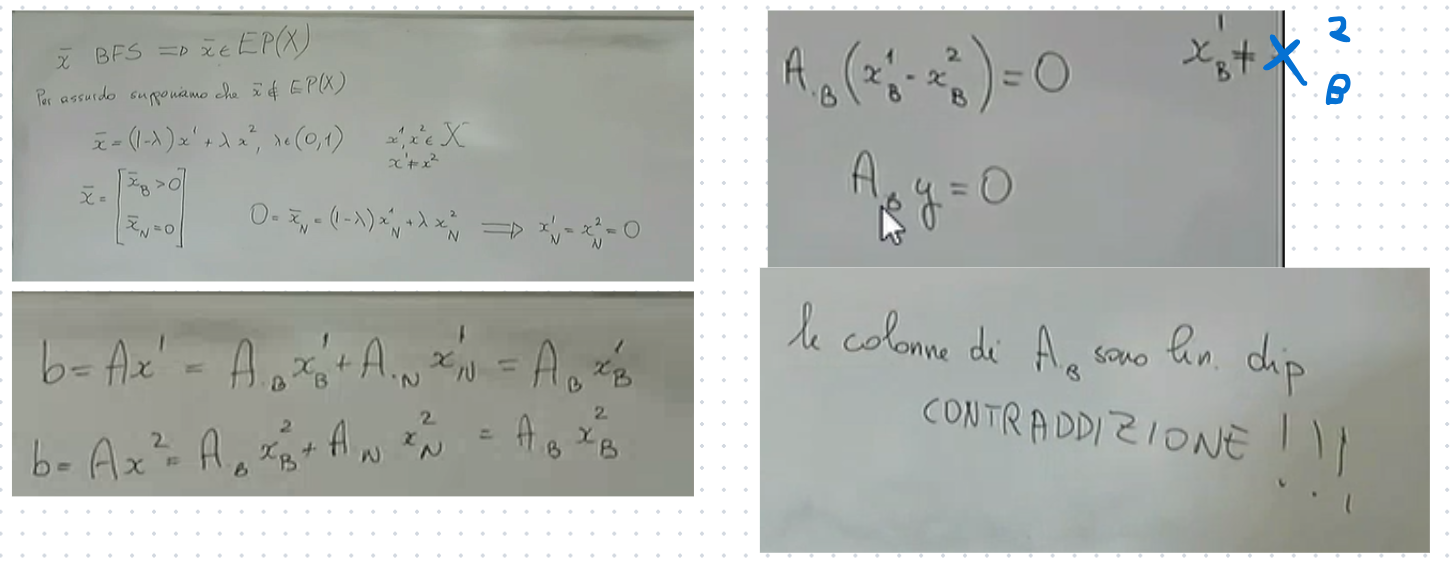 x̄ BFS ⟹ x̄ ∈ EP(X)
Per assurdo supponiamo che x̄ ∉ EP(X)
x̄ = (1-λ) x¹ + λ x², λ ∈ (0,1) x¹, x² ∈ X
x¹ ≠ x²
x̄ = [x̄_B > 0
x̄_N = 0]
0 = x̄_N = (1-λ) x¹_N + λ x²_N ⟹ x¹_N = x²_N = 0
b = Ax¹ = A.B x¹_B + A.N x¹_N = A_B x¹_B
b = Ax² = A_B x²_B + A_N x²_N = A_B x²_B
A.B (x¹_B - x²_B) = 0 x¹_B ≠ x²_B
A_B y = 0
le colonne di A_B sono lin. dip
CONTRADDIZIONE !!!